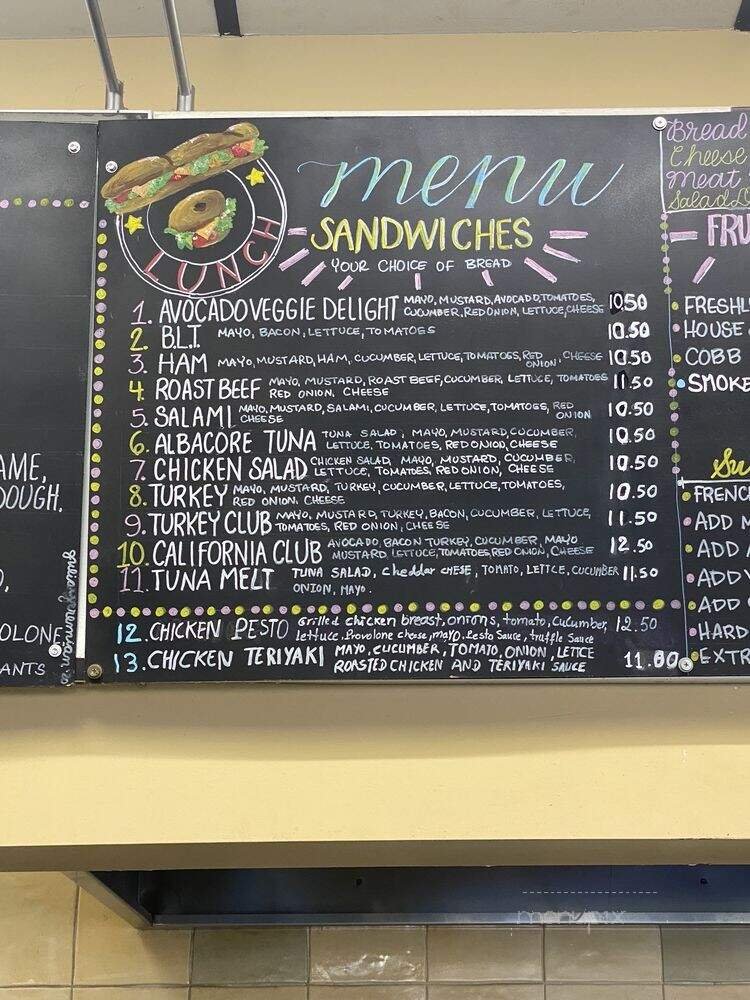 menu
SANDWICHES
LUNCH
YOUR CHOICE OF BREAD
1. AVOCADO VEGGIE DELIGHT MAYO, MUSTARD, AVOCADO, TOMATOES, 10.50
CUCUMBER, RED ONION, LETTUCE, CHEESE
2. B.L.T. MAYO, BACON, LETTUCE, TOMATOES 10.50
3. HAM MAYO, MUSTARD, HAM, CUCUMBER, LETTUCE, TOMATOES, RED ONION, CHEESE 10.50
4. ROAST BEEF MAYO, MUSTARD, ROAST BEEF, CUCUMBER, LETTUCE, TOMATOES 11.50
RED ONION, CHEESE
5. SALAMI MAYO, MUSTARD, SALAMI, CUCUMBER, LETTUCE, TOMATOES, RED ONION 10.50
CHEESE
6. ALBACORE TUNA TUNA SALAD, MAYO, MUSTARD, CUCUMBER, 10.50
LETTUCE, TOMATOES, RED ONION, CHEESE
7. CHICKEN SALAD CHICKEN SALAD, MAYO, MUSTARD, CUCUMBER, 10.50
LETTUCE, TOMATOES, RED ONION, CHEESE
8. TURKEY MAYO, MUSTARD, TURKEY, CUCUMBER, LETTUCE, TOMATOES, 10.50
RED ONION, CHEESE
9. TURKEY CLUB MAYO, MUSTARD, TURKEY, BACON, CUCUMBER, LETTUCE, 11.50
TOMATOES, RED ONION, CHEESE
10. CALIFORNIA CLUB AVOCADO, BACON TURKEY, CUCUMBER, MAYO 12.50
MUSTARD, LETTUCE, TOMATOES, RED ONION, CHEESE
11. TUNA MELT TUNA SALAD, cheddar CHESE, TOMATO, LETTCE, CUCUMBER 11.50
ONION, MAYO.
12. CHICKEN PESTO Grilled chicken breast, onions, tomato, cucumber, 12.50
lettuce. Provolone cheese, mayo. Pesto Sauce, truffle Sauce
13. CHICKEN TERIYAKI MAYO, CUCUMBER, TOMATO, ONION, LETTCE 11.00
ROASTED CHICKEN AND TERIYAKI SAUCE
AME,
DOUGH.
OLONE
ANTS
Bread
Cheese
Meat
Salad
FRU
FRESHL
HOUSE
COBB
SMOKE
Su
FRENC
ADD M
ADD
ADD
ADD
HARD
EXTR
menupix